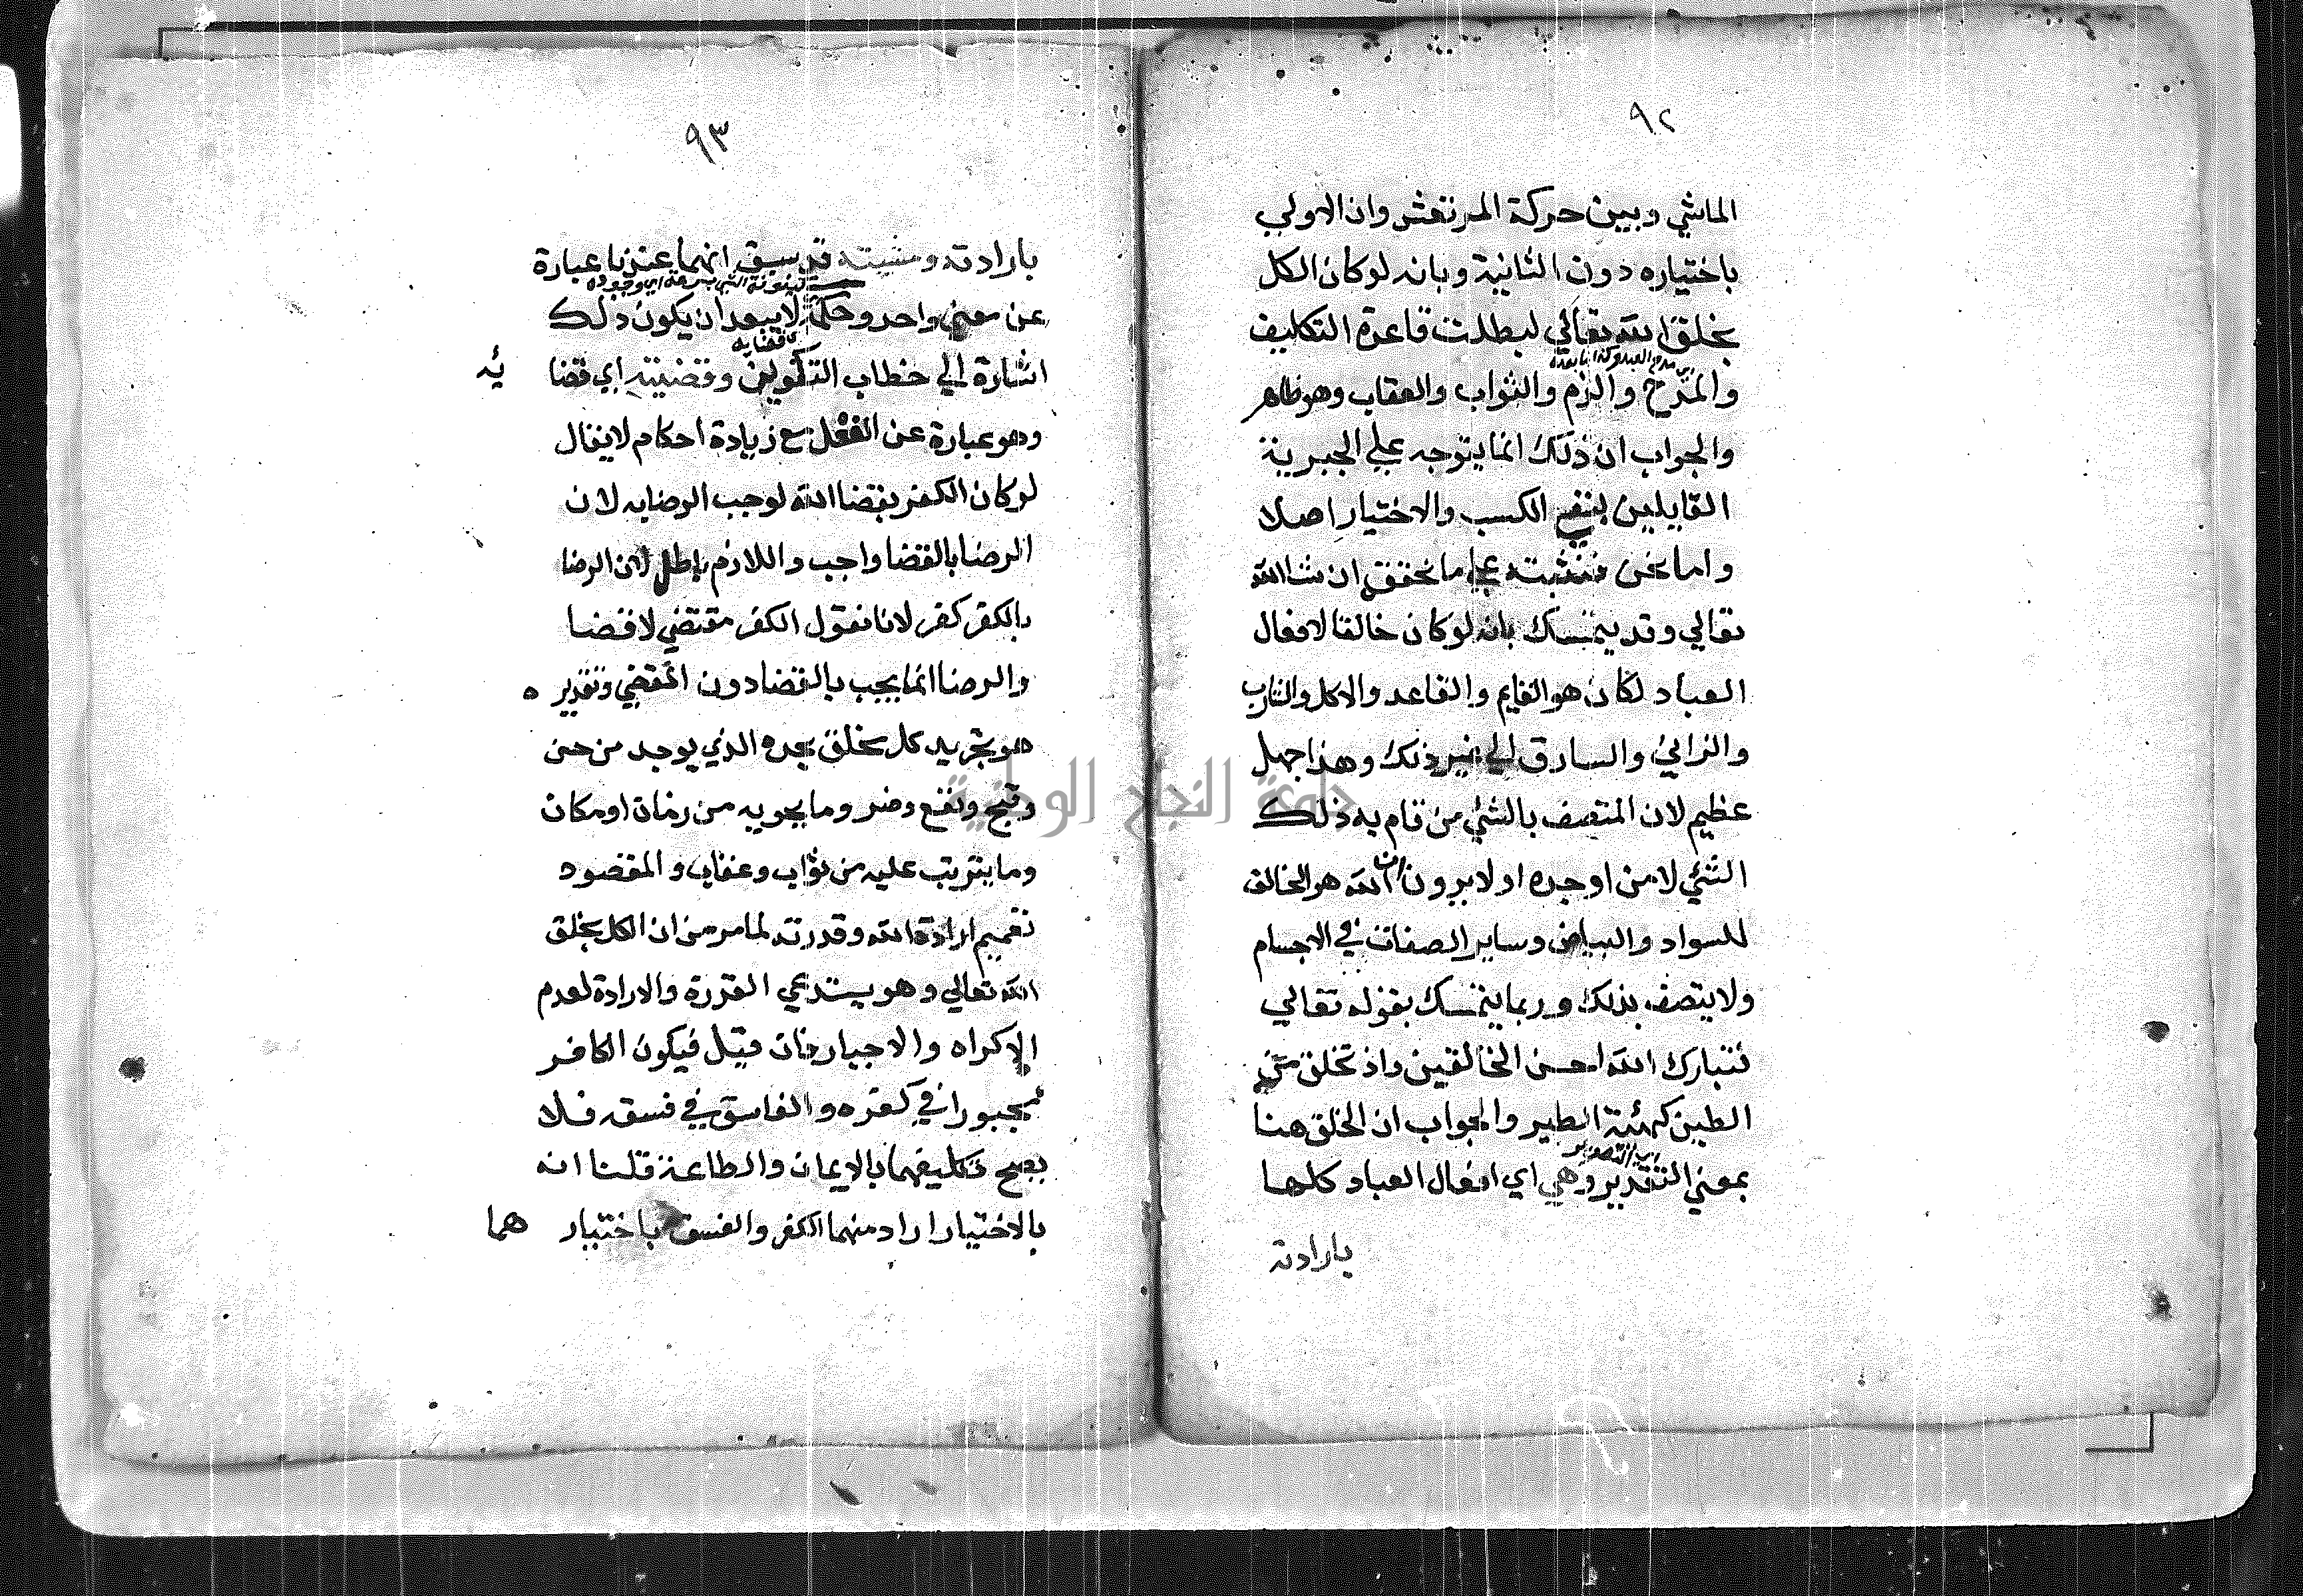 ٩٢
الماشي وبين حركة المرتعش وان الاولي
باختياره دون الثانية وبانه لو كان الكل
بخلق الله تعالي لبطلت قاعدة التكليف
والمدح والذم والثواب والعقاب وهو ظاهر
والجواب ان ذلك انما يتوجه علي الجبرية
القايلين بنفي الكسب والاختيار اصلا
واما نحن فنثبته علي ما نحقق ان شا الله
تعالي وقد يتمسك بانه لو كان خالقا لافعال
العباد لكان هو القايم والقاعد والاكل والشارب
والزاني والسارق الي غير ذلك وهذا جهل
عظيم لان المتصف بالشئي من قام به ذلك
الشئي لا من اوجده اولا يرون ان الله هو الخالق
للسواد والبياض وساير الصفات في الاجسام
ولا يتصف بذلك وربما يتمسك بقوله تعالي
فتبارك الله احسن الخالقين واذ تخلق من
الطين كهيئة الطير والجواب ان الخلق هنا
اي التصوير
بمعني التقدير وهي اي افعال العباد كلها
بارادته
٩٣
بارادته ومشيته قد سبق انهما عندنا عبارة
عن معني واحد وحكمه لا يبعد ان يكون ذلك
اشارة الي خطاب التكوين وقضيته اي قضا
ئه
وهو عبارة عن الفعل مع زيادة احكام لا يقال
لو كان الكفر بقضا الله لوجب الرضا به لان
الرضا بالقضا واجب واللازم باطل لان الرضا
بالكفر كفر لانا نقول الكفر مقتضي لا قضا
والرضا انما يجب بالقضا دون المقضي وتقديره
هو تحديد كل مخلق بحده الذي يوجد من حسن
وقبح ونفع وضر وما يحويه من زمان او مكان
وما يترتب عليه من ثواب وعقاب والمقصود
تعميم ارادة الله وقدرته لما مر من ان الكل بخلق
الله تعالي وهو يستدعي القدرة والارادة لعدم
الاكراه والاجبار فان قيل فيكون الكافر
مجبورا في كفره والفاسق في فسقه فلا
يصح تكليفهما بالايمان والطاعة قلنا انه
بالاختيار اراد منهما الكفر والفسق باختيار هما
جامعة النجاح الوطنية